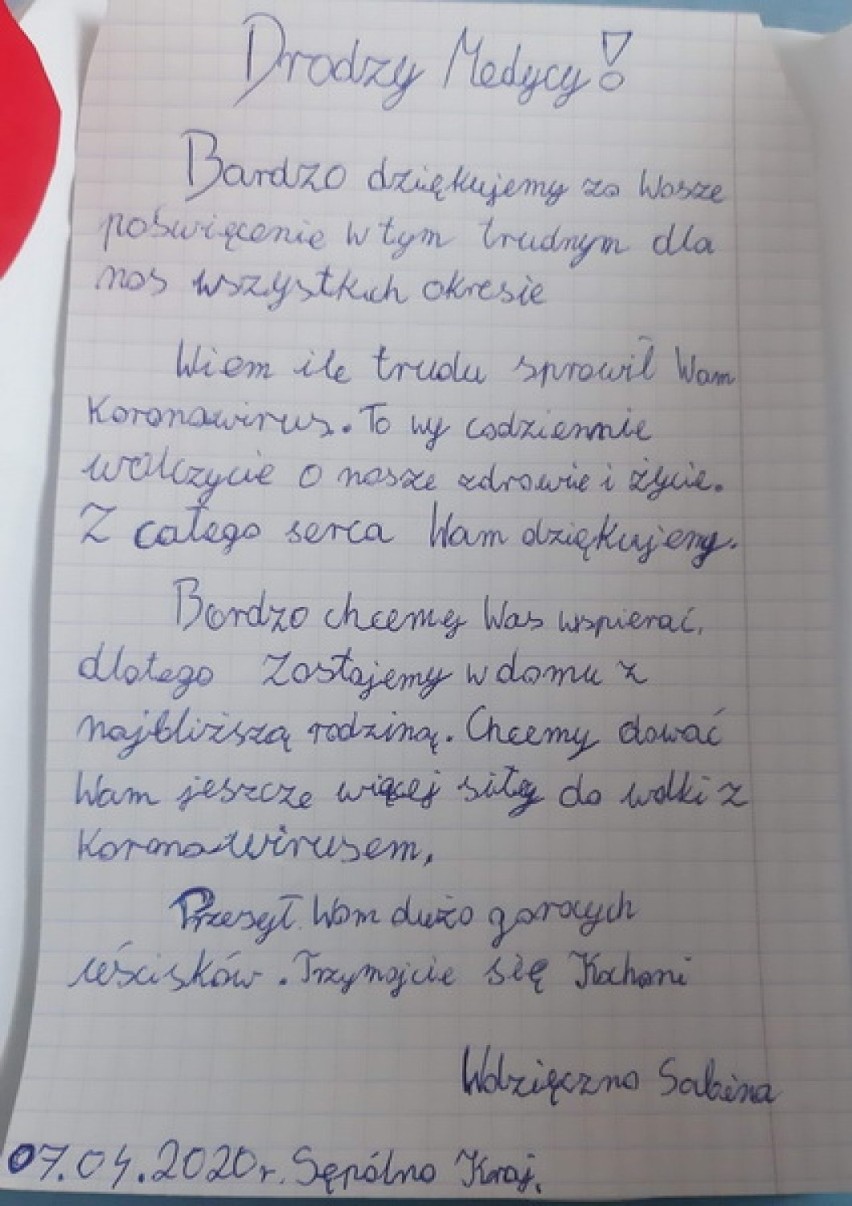 Drodzy Medycy!
Bardzo dziękujemy za Wasze
poświęcenie w tym trudnym dla
nas wszystkich okresie
Wiem ile trudu sprawił Wam
Koronawirus. To wy codziennie
walczycie o nasze zdrowie i życie.
Z całego serca Wam dziękujemy.
Bardzo chcemy Was wspierać,
dlatego zostajemy w domu z
najbliższą rodziną. Chcemy dawać
Wam jeszcze więcej siły do walki z
Koronawirusem,
Przesył Wam dużo gorących
uścisków. Trzymajcie się Kochani
Wdzięczna Sabina
07.04.2020r. Sępólno Kraj.